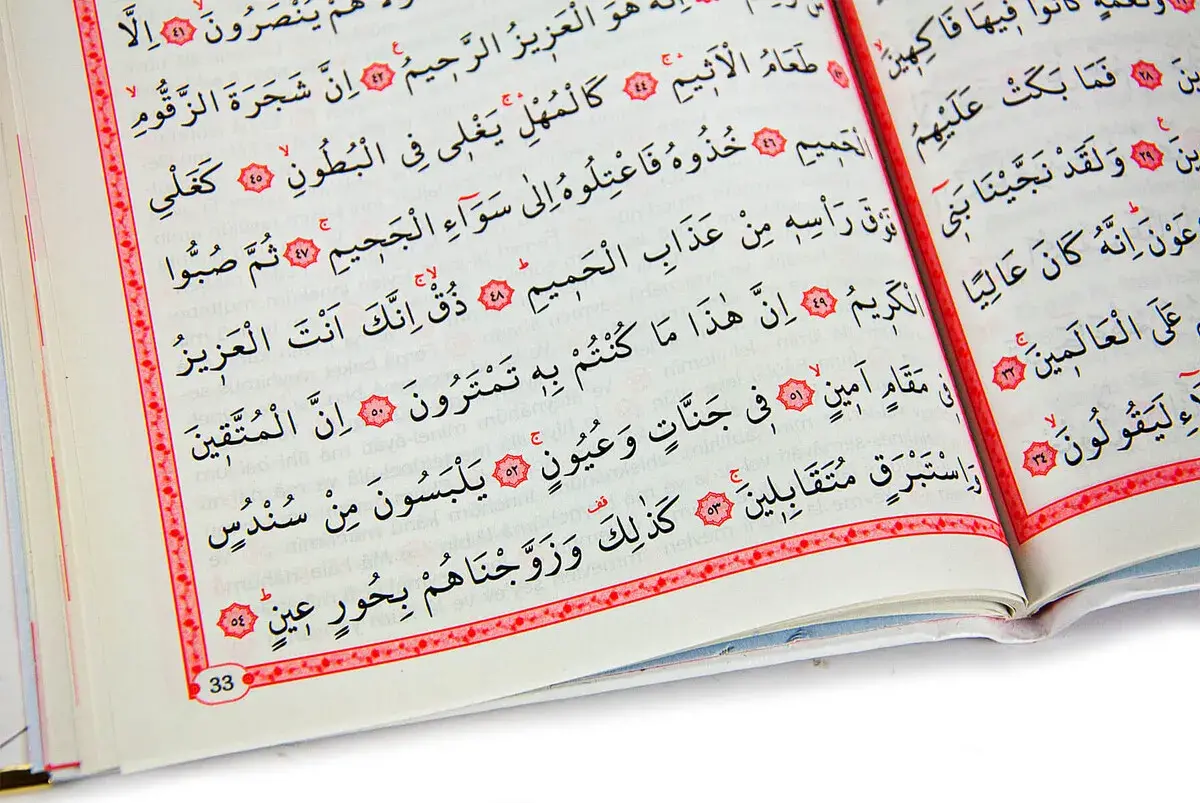 وَنَعْمَةٍ كَانُوا فٖيهَا فَاكِهٖينَۙ
﴿٢٨﴾ فَمَا بَكَتْ عَلَيْهِمُ
﴿٢٩﴾ وَلَقَدْ نَجَّيْنَا بَنٖٓى
اِنَّهُ كَانَ عَالِيًا
عَلَى الْعَالَمٖينَۚ ﴿٣٢﴾
لَيَقُولُونَۙ ﴿٣٤﴾
هُمْ يُنْصَرُونَۙ ﴿٤١﴾ اِلَّا
اِنَّهُ هُوَ الْعَزٖيزُ الرَّحٖيمُ ﴿٤٢﴾ اِنَّ شَجَرَةَ الزَّقُّومِۙ
﴿٤٣﴾ طَعَامُ الْاَثٖيمِۚ ﴿٤٤﴾ كَالْمُهْلِۚ يَغْلٖى فِى الْبُطُونِۙ ﴿٤٥﴾ كَغَلْىِ
الْحَمٖيمِ ﴿٤٦﴾ خُذُوهُ فَاعْتِلُوهُ اِلٰى سَوَٓاءِ الْجَحٖيمِۚ ﴿٤٧﴾ ثُمَّ صُبُّوا
فَوْقَ رَاْسِهٖ مِنْ عَذَابِ الْحَمٖيمِؕ ﴿٤٨﴾ ذُقْۚۙ اِنَّكَ اَنْتَ الْعَزٖيزُ
الْكَرٖيمُ ﴿٤٩﴾ اِنَّ هٰذَا مَا كُنْتُمْ بِهٖ تَمْتَرُونَ ﴿٥٠﴾ اِنَّ الْمُتَّقٖينَ
فٖى مَقَامٍ اَمٖينٍۙ ﴿٥١﴾ فٖى جَنَّاتٍ وَعُيُونٍۚ ﴿٥٢﴾ يَلْبَسُونَ مِنْ سُنْدُسٍ
وَاِسْتَبْرَقٍ مُتَقَابِلٖينَۚ ﴿٥٣﴾ كَذٰلِكَ وَزَوَّجْنَاهُمْ بِحُورٍ عٖينٍؕ ﴿٥٤﴾
33